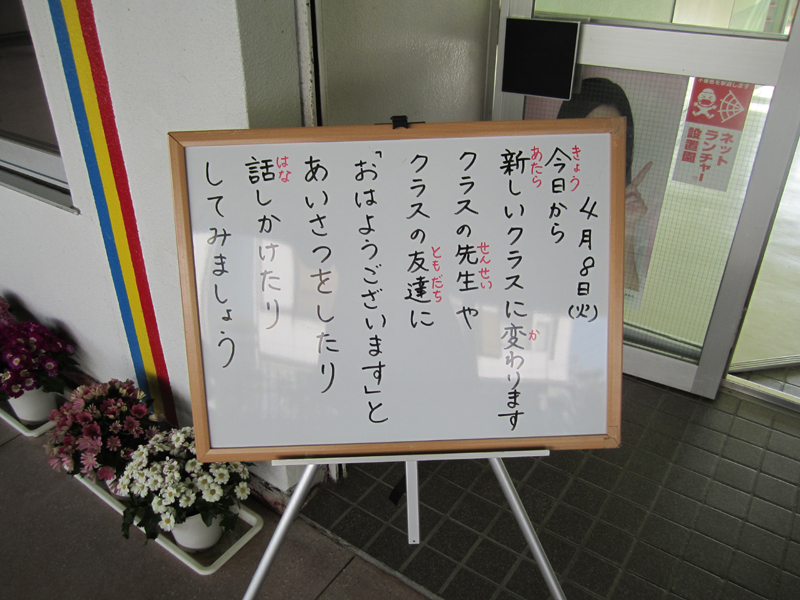 4月8日(火)
今日から
新しいクラスに変わります
クラスの先生や
クラスの友達に
「おはようございます」と
あいさつをしたり
話しかけたり
してみましょう
きょう
あたら
か
せんせい
ともだち
はな
ネット
ランチャー
設置園